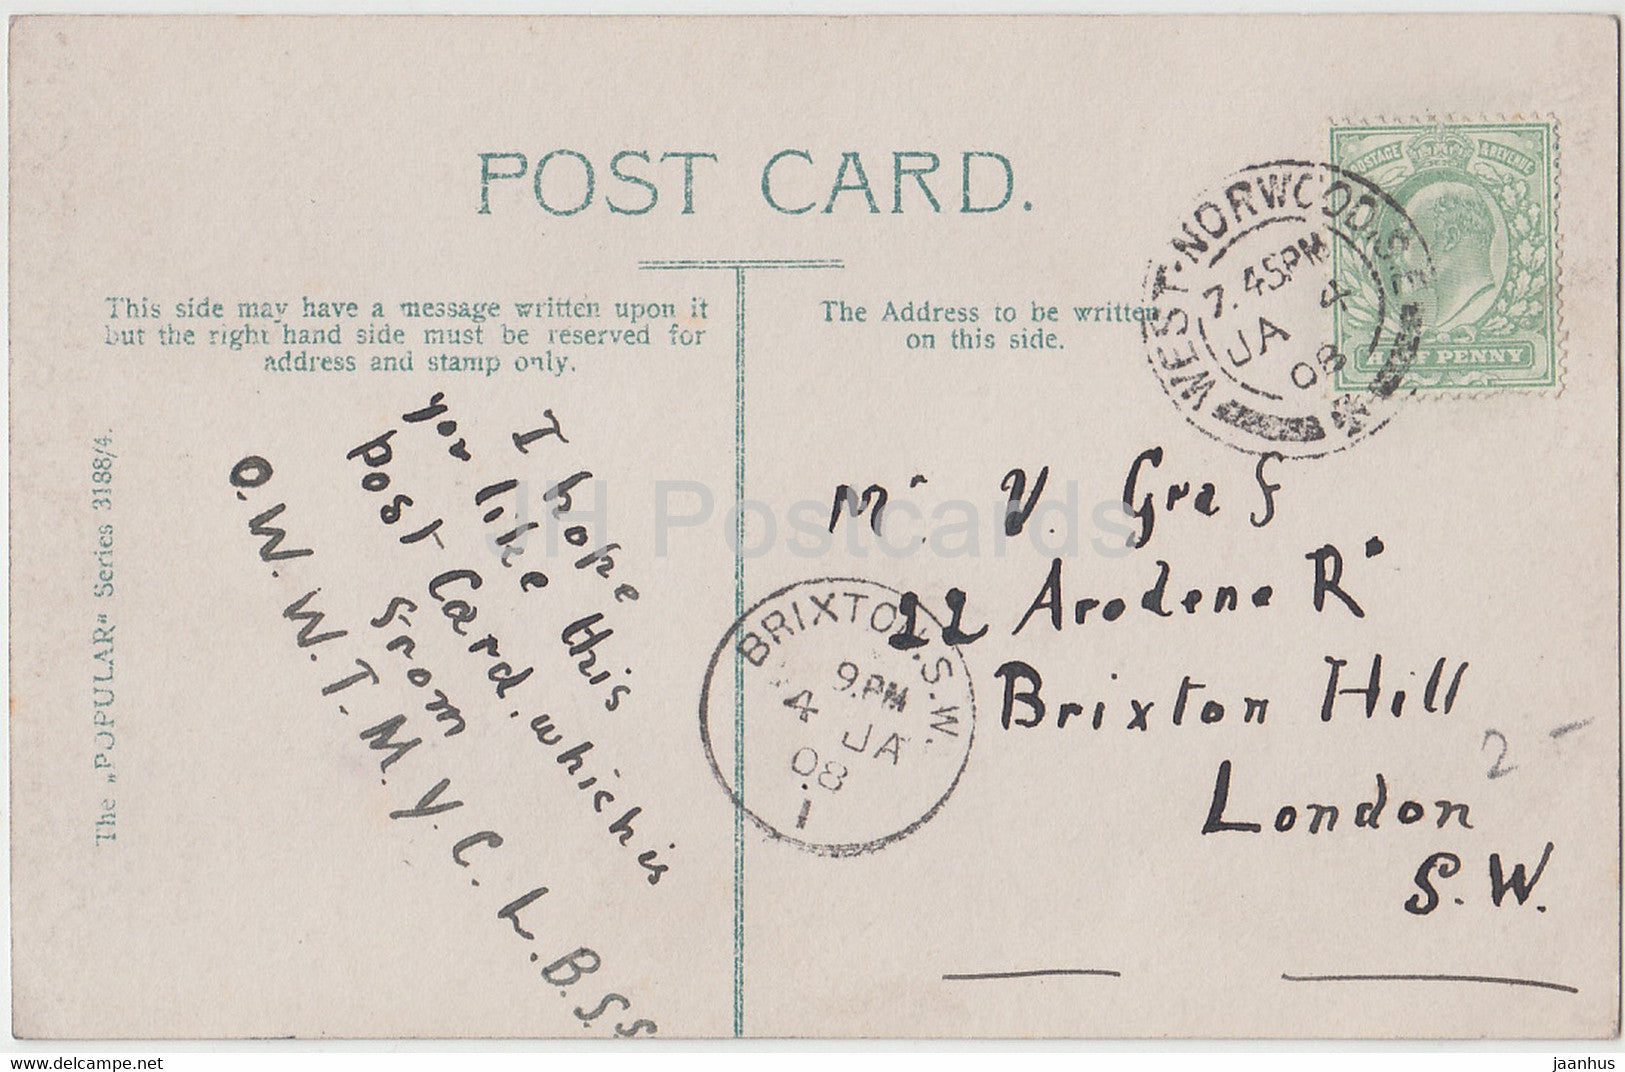 POST CARD.
This side may have a message written upon it
but the right hand side must be reserved for
address and stamp only.
The Address to be written
on this side.
The „POPULAR" Series 3188/4.
I hope
you like this
post Card. which is
from
O. W. W. T. M. Y. C. L. B. S. S.
Mr V. Graf
22 Arodene Rd
Brixton Hill
London
S. W.
2 -
WEST·NORWOOD.S.E.
7.45PM
JA 4
08
BRIXTON.S.W.
9.PM
4 JA
08
1
POSTAGE & REVENUE
HALF PENNY
JH Postcards
www.delcampe.net
jaanhus